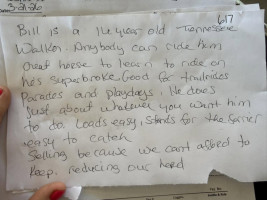 3-21-20
617
Bill is a 14 year old Tennessee
Walker. Anybody can ride him
Great horse to learn to ride on
he's superbroke. Good for trailrides
Parades and playdays. He does
just about whatever you want him
to do. Loads easy, stands for the farrier
easy to catch
Selling because we cant afford to
keep, reducing our herd